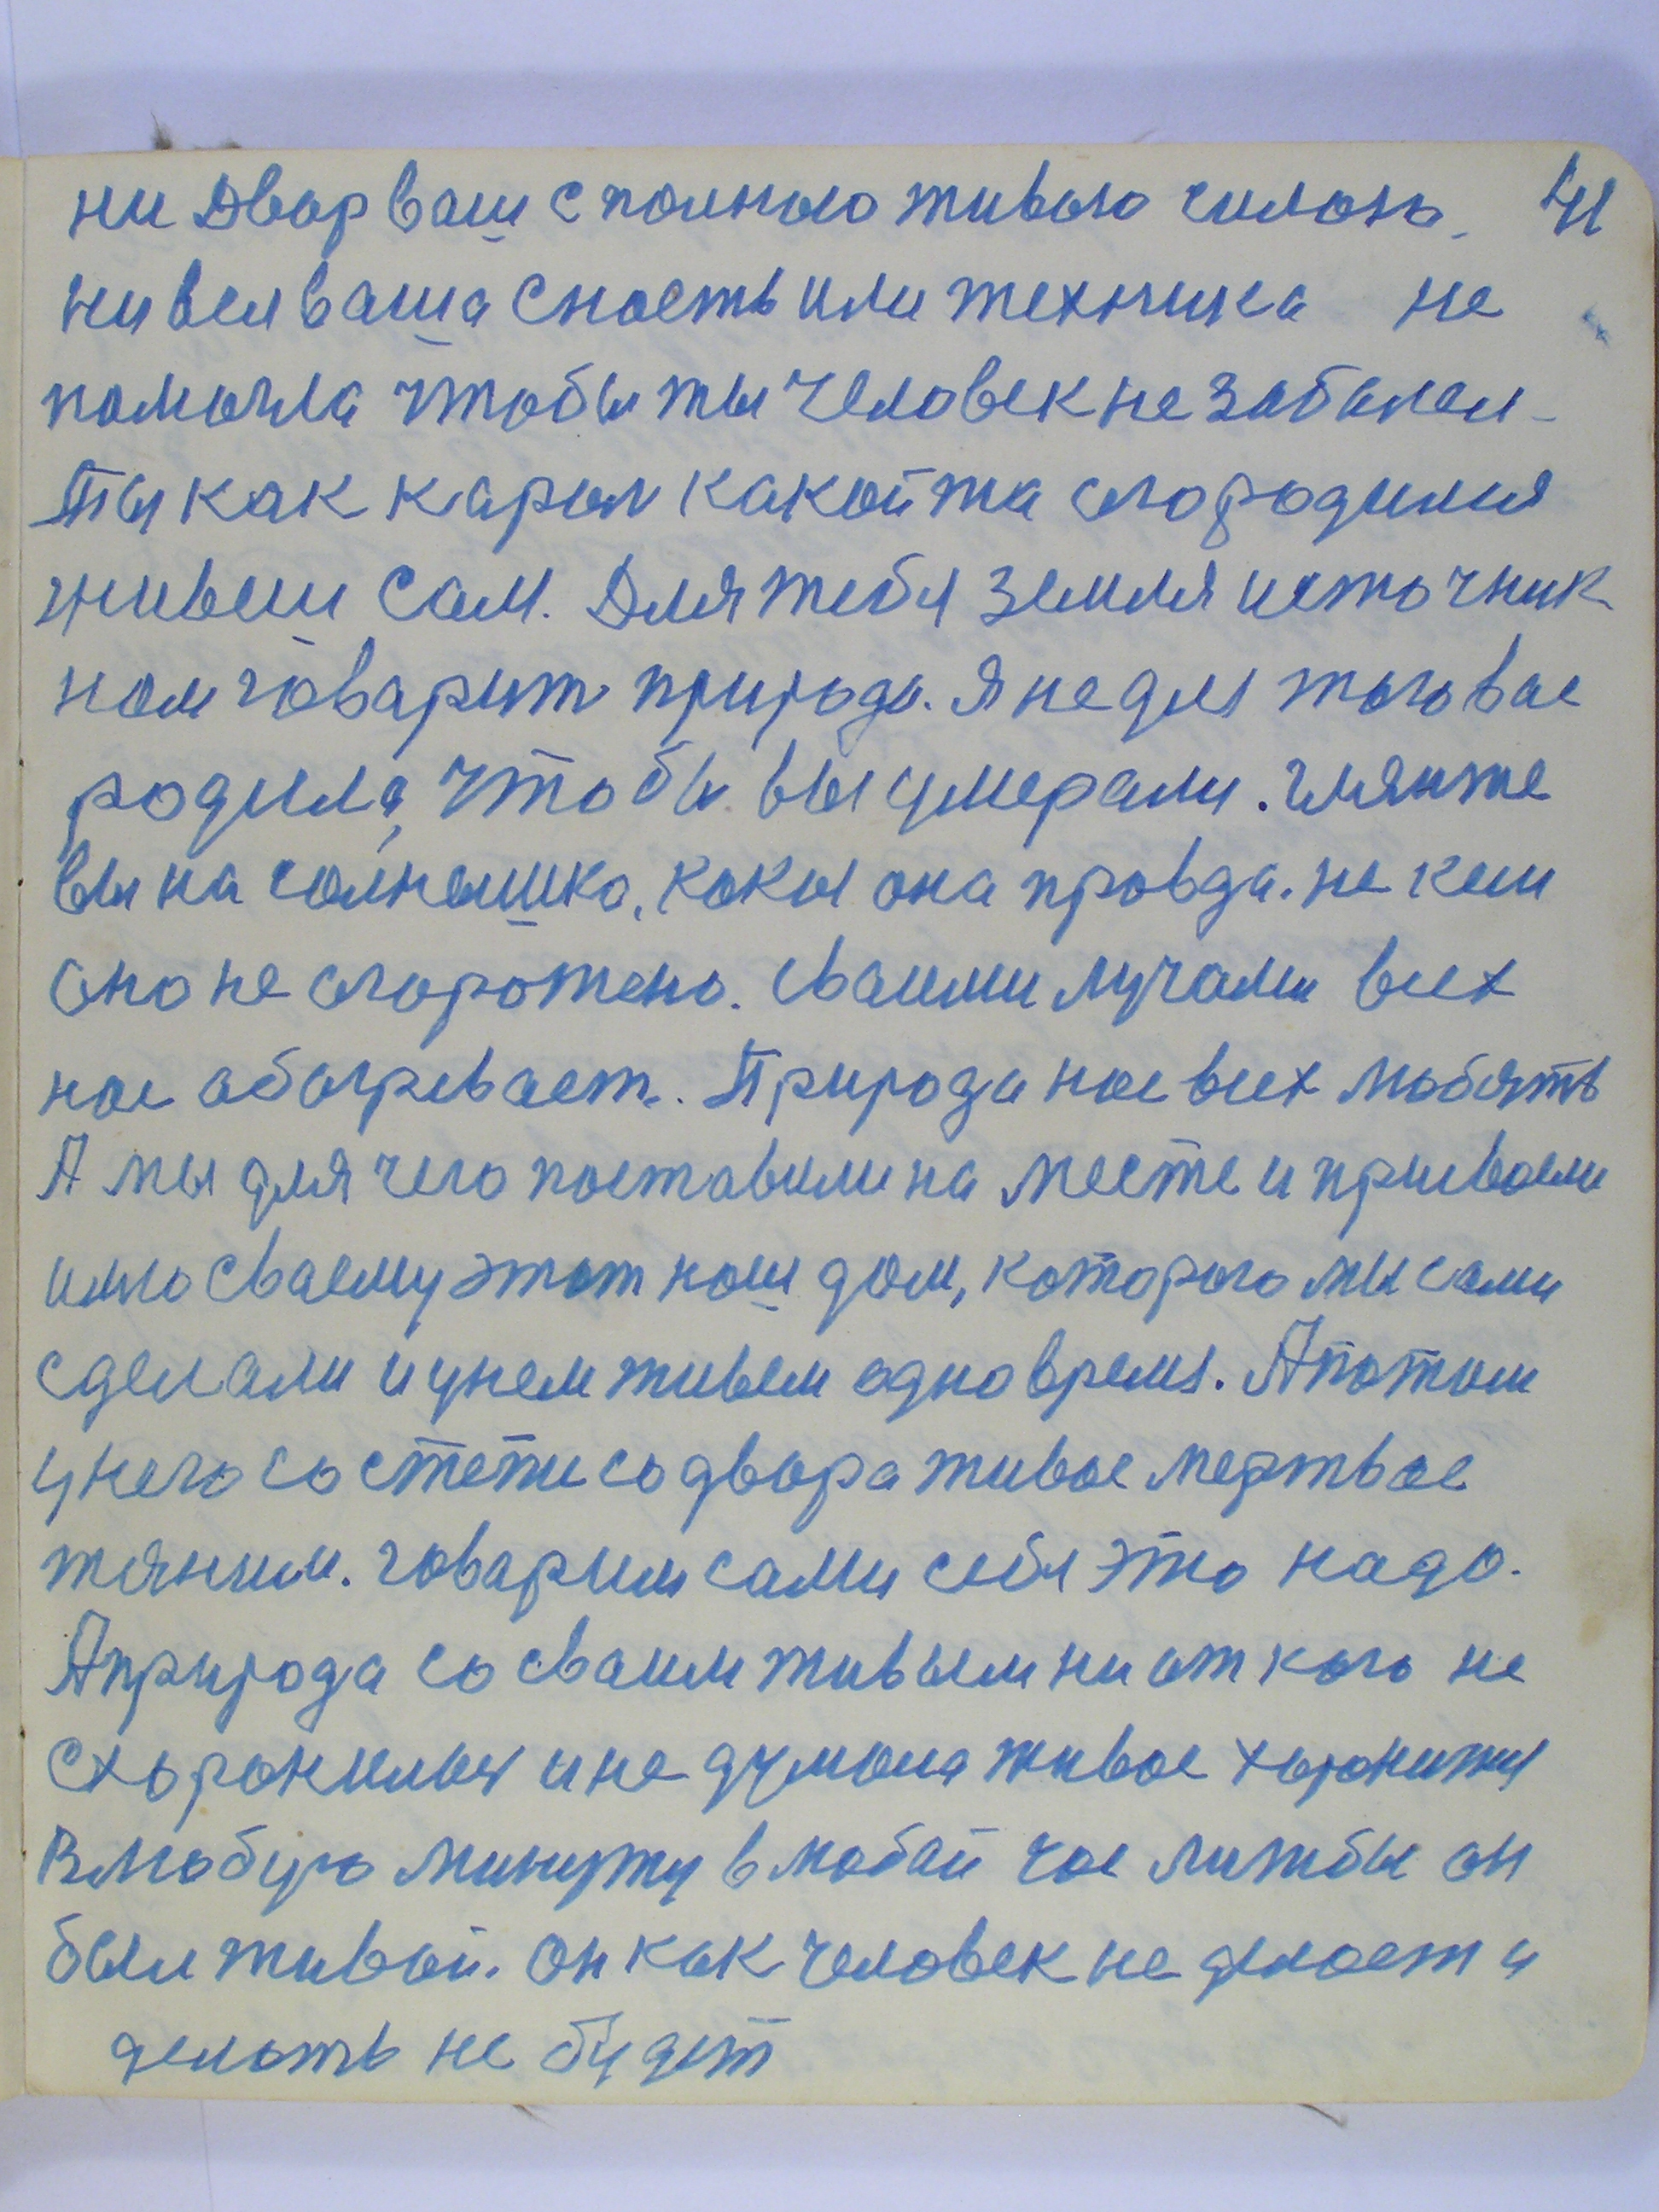 ни двор ваш с полного живого силою. 41
ни вся ваша снасть или техника не
помогла чтобы ты человек не заболел
Ты как кароль какойта огородился
живеш сам. Для тебя земля источник
нам говарит природа. Я не для того вас
родила, чтобы вы умерали. гляньте
вы на солнышко, какы она правда. не кем
оно не огорожено. Сваими лучами всех
нас абогревает. Природа нас всех любять
А мы для чего поставили на месте и присвоели
имю сваему этот наш дом, которого мы сами
сделали и у нем живем одно время. А потом
у него со степи со двора живое мертвое
тяним. говарим сами себя это надо.
А природа со сваим живым ни от кого не
схоронилась и не думала живое хоронится
В любую минуту в любой час лижбы он
был живой. Он как человек не делает и
делать не будет